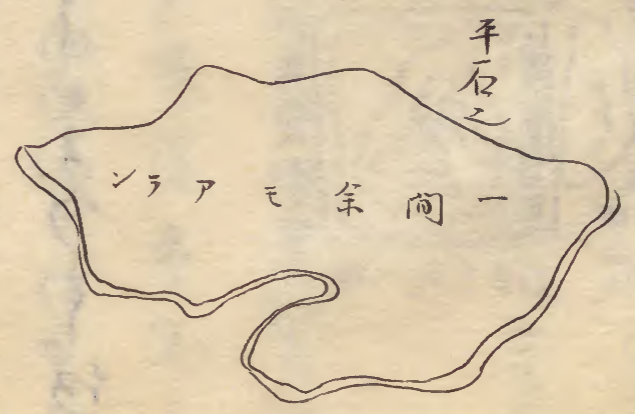 平石之
一間余モアラン